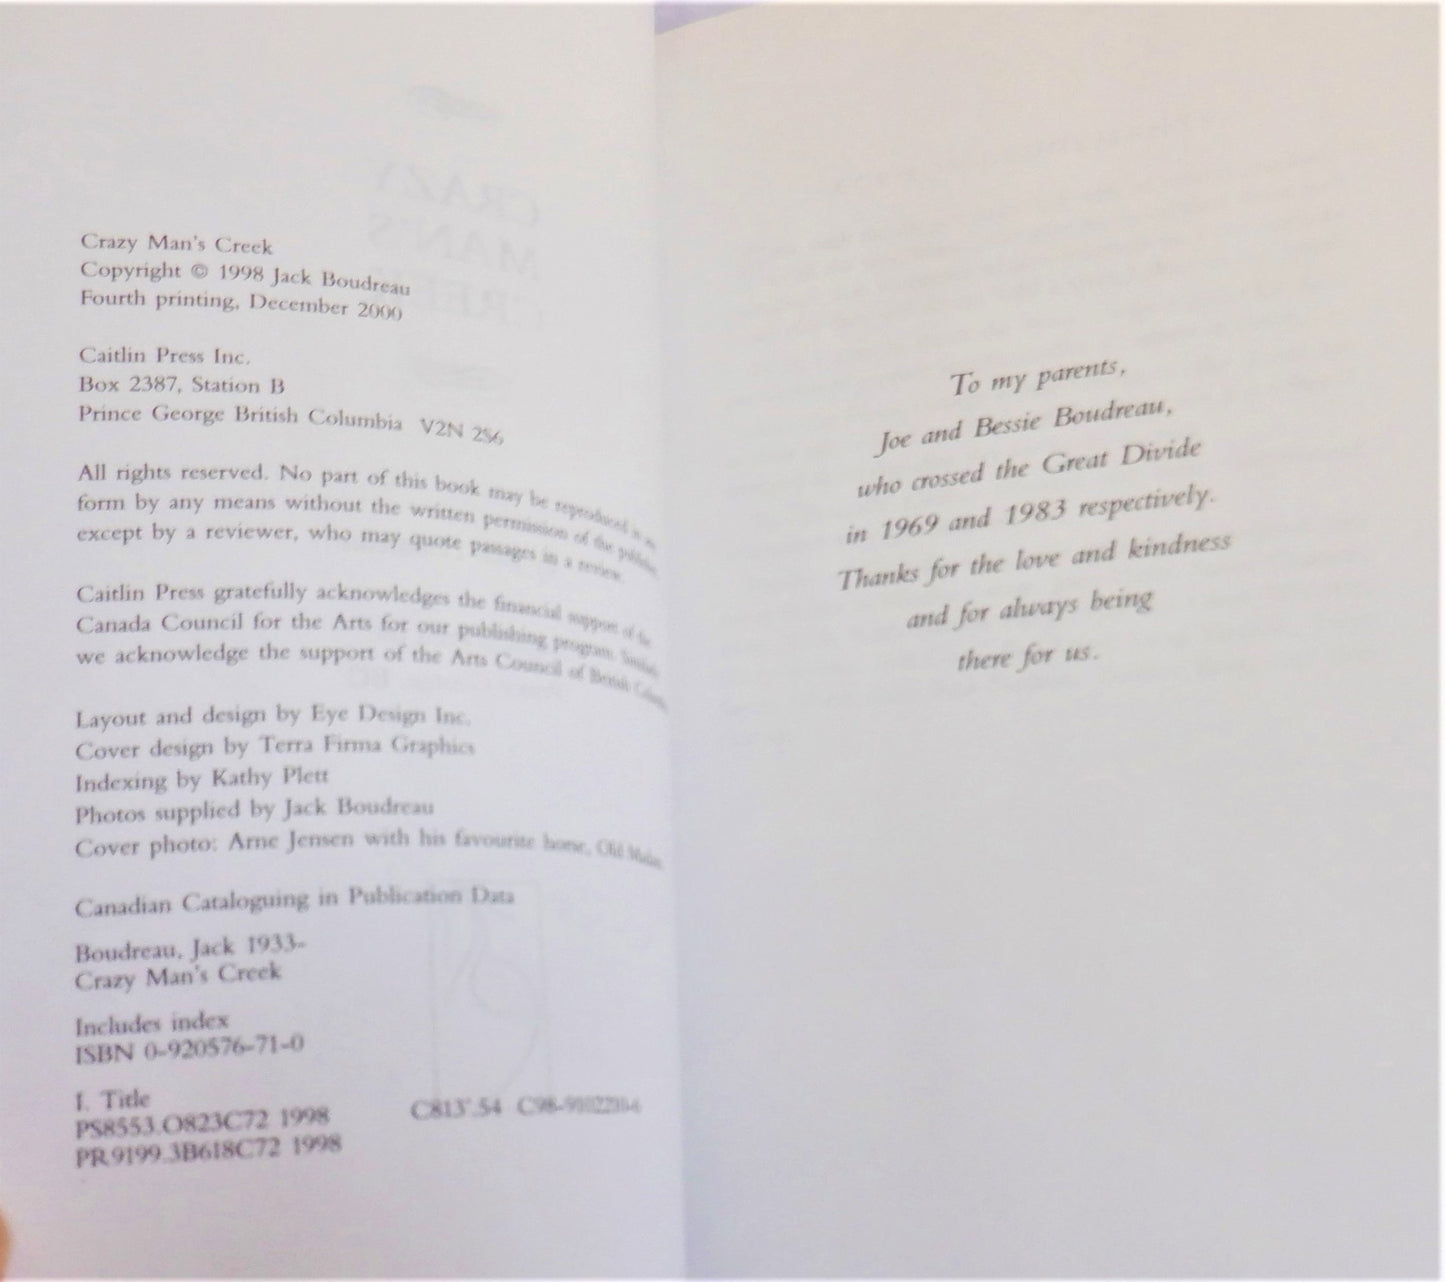 Crazy Man's Creek
Copyright © 1998 Jack Boudreau
Fourth printing, December 2000
Caitlin Press Inc.
Box 2387, Station B
Prince George British Columbia V2N 2S6
All rights reserved. No part of this book may be reproduced in any
form by any means without the written permission of the publisher,
except by a reviewer, who may quote passages in a review.
Caitlin Press gratefully acknowledges the financial support of the
Canada Council for the Arts for our publishing program. Similarly
we acknowledge the support of the Arts Council of British Columbia.
Layout and design by Eye Design Inc.
Cover design by Terra Firma Graphics
Indexing by Kathy Plett
Photos supplied by Jack Boudreau
Cover photo: Arne Jensen with his favourite horse, Old
Canadian Cataloguing in Publication Data
Boudreau, Jack 1933-
Crazy Man's Creek
Includes index
ISBN 0-920576-71-0
I. Title
PS8553.O823C72 1998 C813'.54
PR9199.3B618C72 1998
To my parents,
Joe and Bessie Boudreau,
who crossed the Great Divide
in 1969 and 1983 respectively.
Thanks for the love and kindness
and for always being
there for us.
CRAZY
MAN'S
CREEK